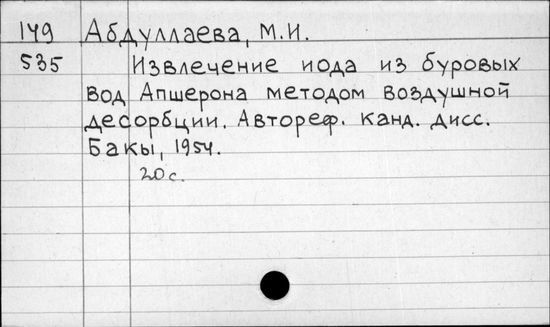 149 Абдуллаева, М.И.
535 Извлечение иода из буровых
вод Апшерона методом воздушной
десорбции. Автореф. канд. дисс.
Бакы, 1954.
20 с.